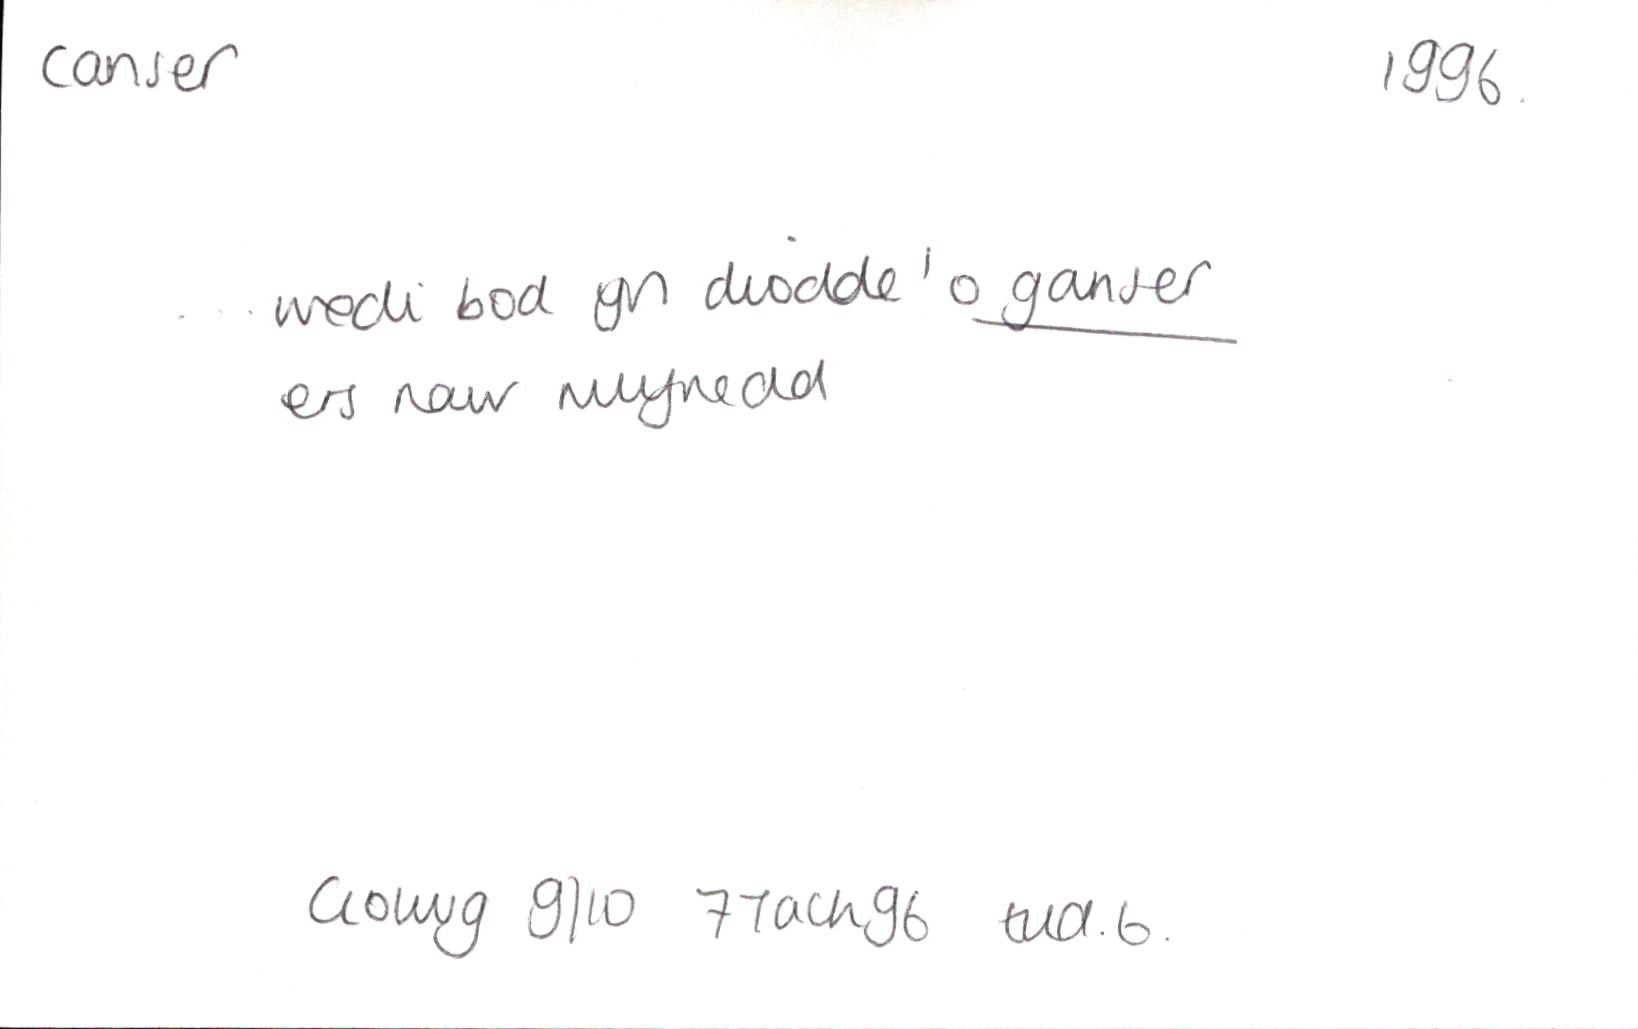 canser 1996.
... wedi bod yn diodde' o ganser
ers naw mlynedd
Golwg 9/10 7 Tach 96 tud. 6.